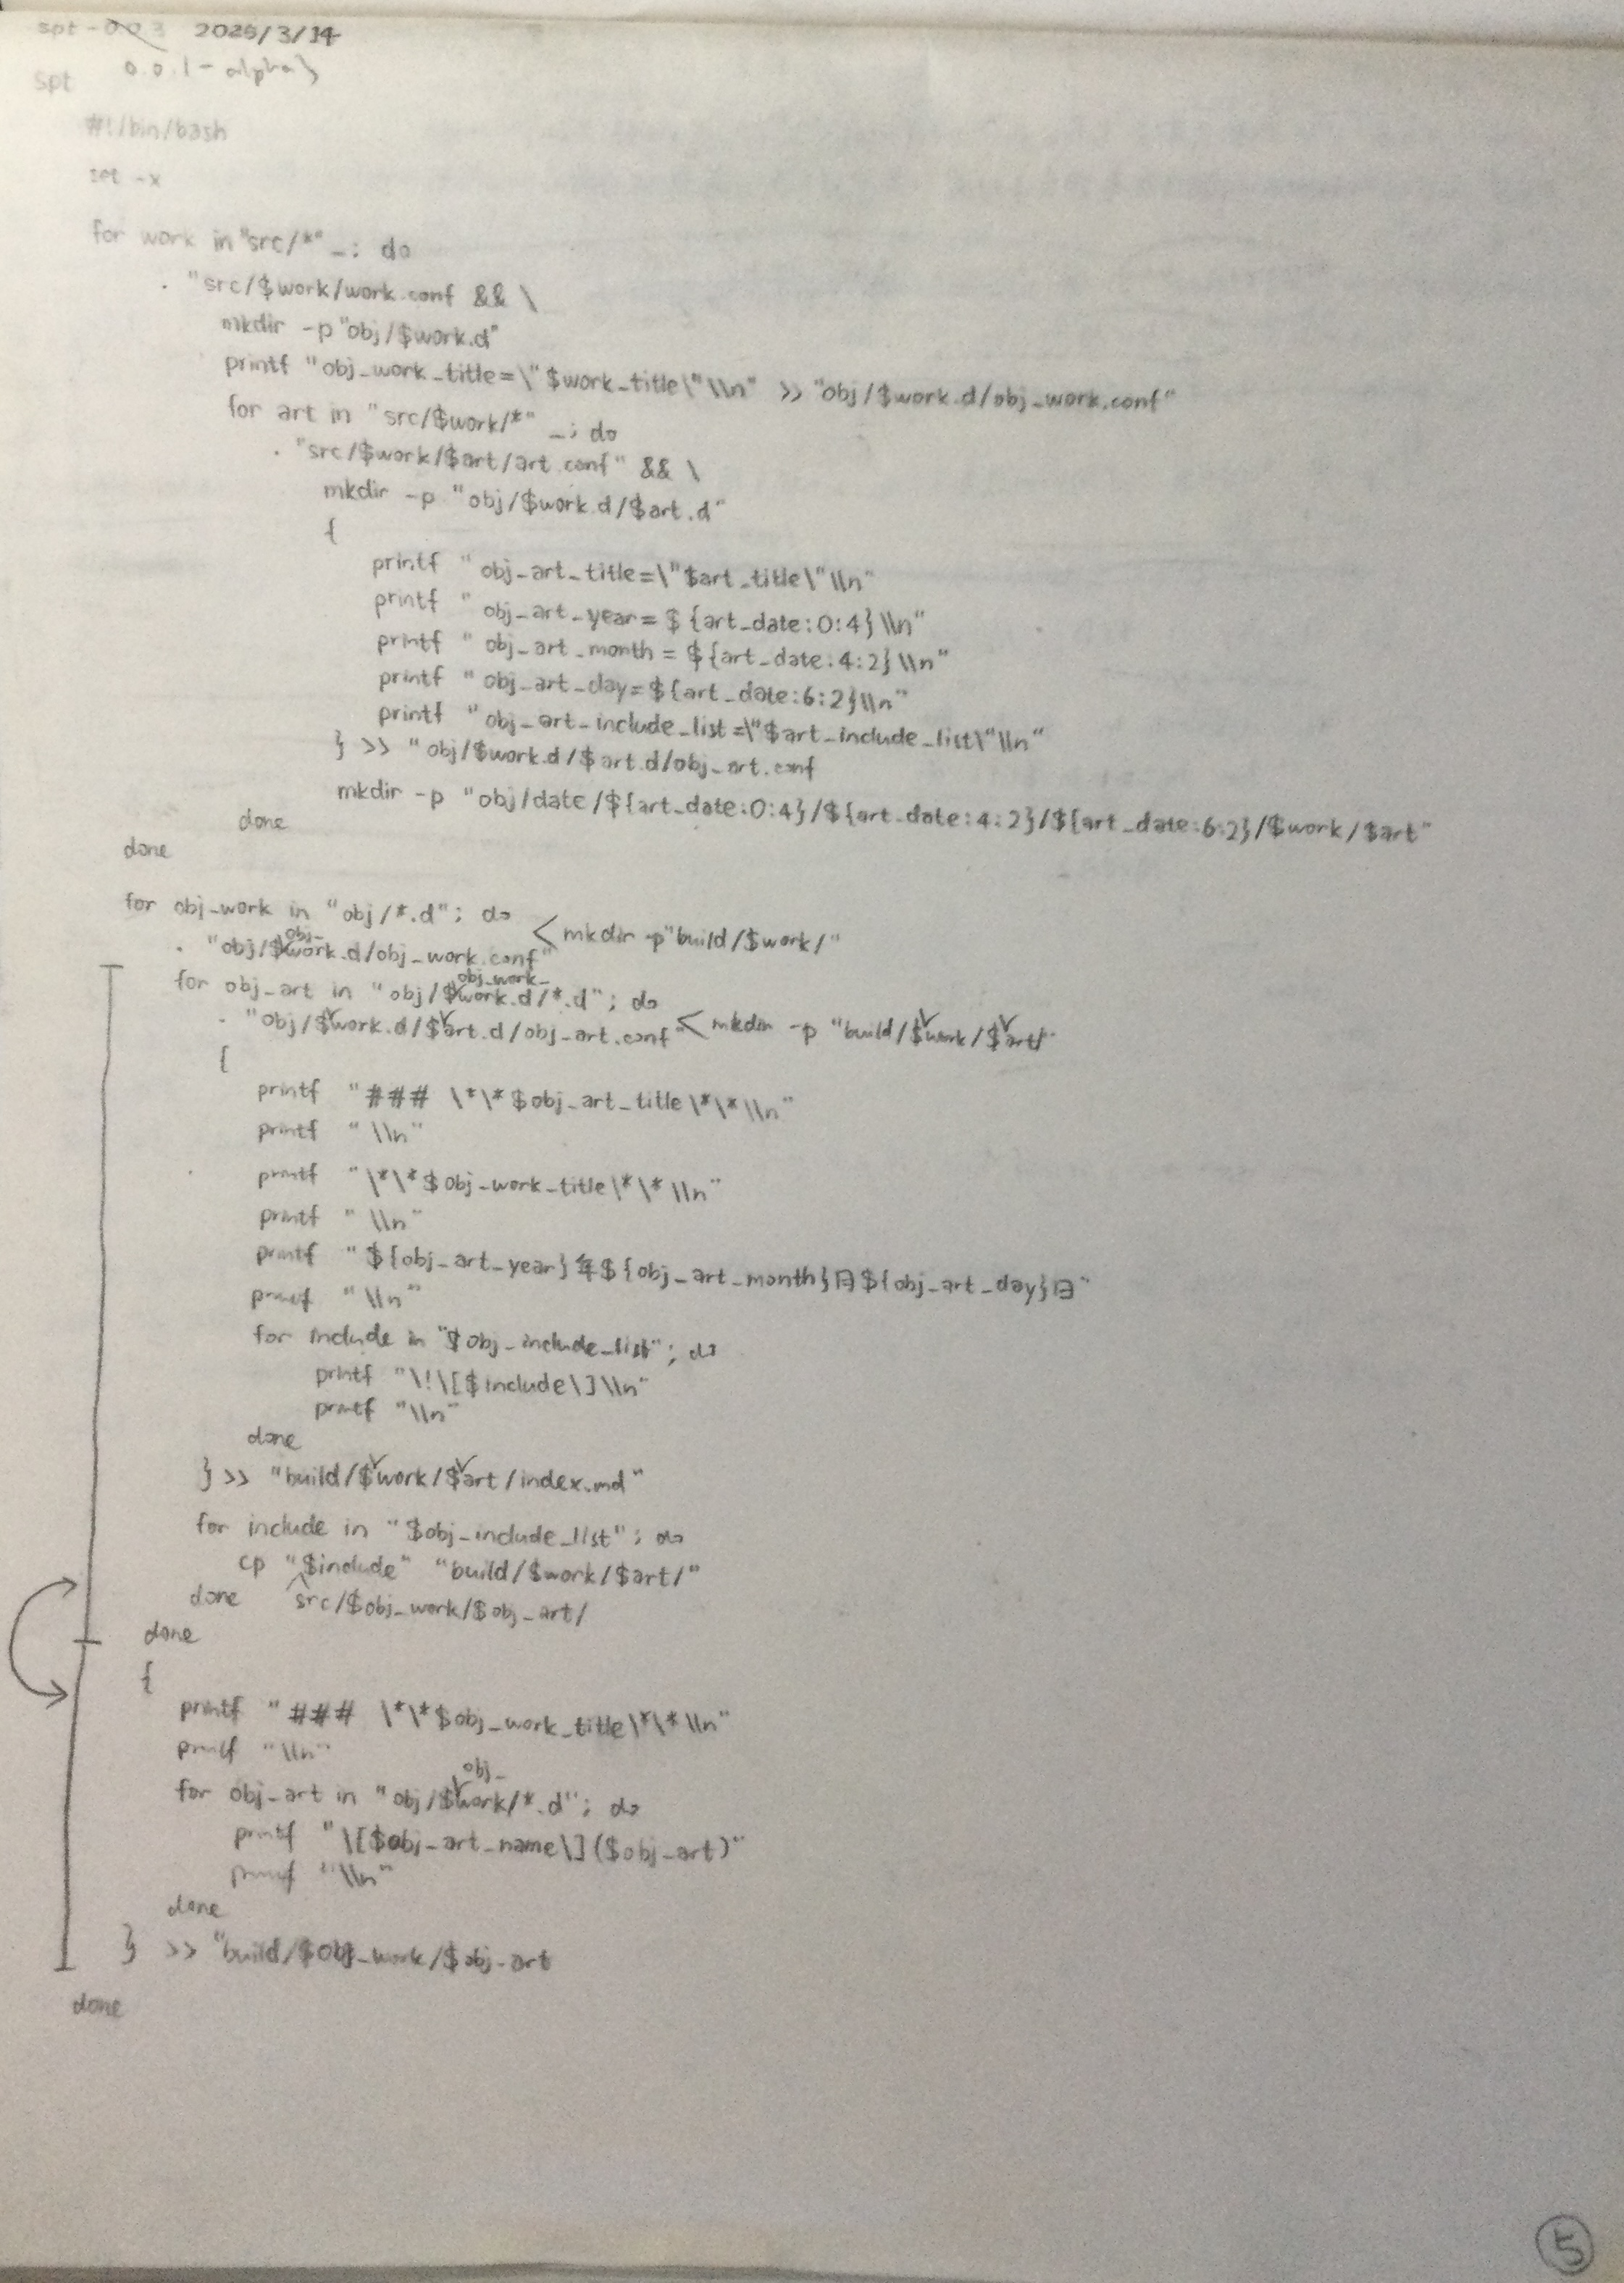 spt-0.0.3 2025/3/14
spt 0.0.1-alpha
#!/bin/bash
set -x
for work in "src/*" _; do
. "src/$work/work.conf && \
mkdir -p "obj/$work.d"
printf "obj_work_title=\"$work_title\"\\n" >> "obj/$work.d/obj_work.conf"
for art in "src/$work/*" _; do
. "src/$work/$art/art.conf" && \
mkdir -p "obj/$work.d/$art.d"
{
printf "obj_art_title=\"$art_title\"\\n"
printf "obj_art_year=${art_date:0:4}\\n"
printf "obj_art_month=${art_date:4:2}\\n"
printf "obj_art_day=${art_date:6:2}\\n"
printf "obj_art_include_list=\"$art_include_list\"\\n"
} >> "obj/$work.d/$art.d/obj_art.conf
mkdir -p "obj/date/${art_date:0:4}/${art_date:4:2}/${art_date:6:2}/$work/$art"
done
done
for obj_work in "obj/*.d"; do < mkdir -p "build/$work/"
obj_
. "obj/$work.d/obj_work.conf"
obj_work_
for obj_art in "obj/$work.d/*.d"; do
. "obj/$work.d/$art.d/obj_art.conf" < mkdir -p "build/$work/$art/"
{
printf "### \*\*$obj_art_title\*\*\\n"
printf "\\n"
printf "\*\*$obj_work_title\*\*\\n"
printf "\\n"
printf "${obj_art_year}年${obj_art_month}月${obj_art_day}日"
printf "\\n"
for include in "$obj_include_list"; do
printf "\!\[$include\]\\n"
printf "\\n"
done
} >> "build/$work/$art/index.md"
for include in "$obj_include_list"; do
cp "$include" "build/$work/$art/"
done src/$obj_work/$obj_art/
done
{
printf "### \*\*$obj_work_title\*\*\\n"
printf "\\n"
obj_
for obj_art in "obj/$work/*.d"; do
printf "\[$obj_art_name\]($obj_art)"
printf "\\n"
done
} >> "build/$obj_work/$obj_art
done
5